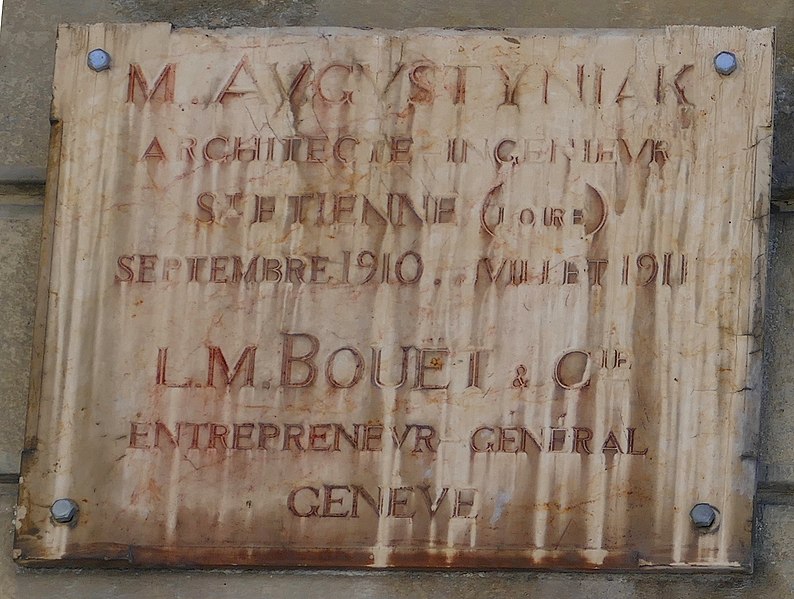 M. AVGVSTYNIAK
ARCHITECTE INGENIEVR
ST ETIENNE (LOIRE)
SEPTEMBRE 1910 .. JVILLET 1911
L.M. BOUËT & CIE
ENTREPRENEVR GENERAL
GENEVE